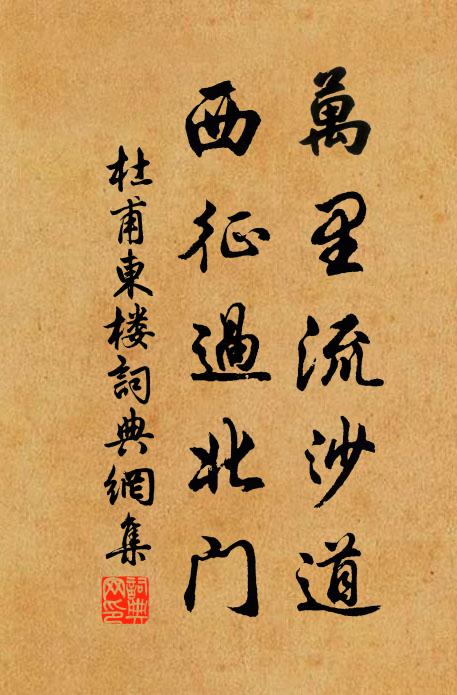 萬里流沙道
西征過北门
杜甫東楼詞典網集
詞典网印